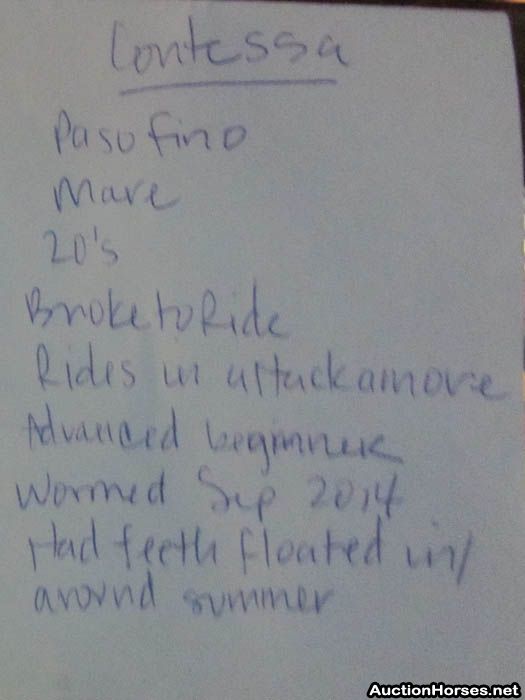 Contessa
Paso fino
Mare
20's
Broke to Ride
Rides in attackamore
Advanced beginner
Wormed Sep 2014
Had teeth floated in/
around summer
AuctionHorses.net